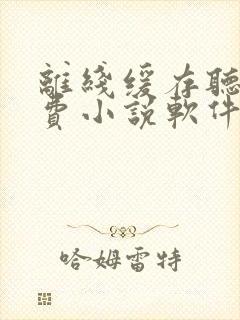 離綫缓存聽
費小説軟件
哈姆雷特